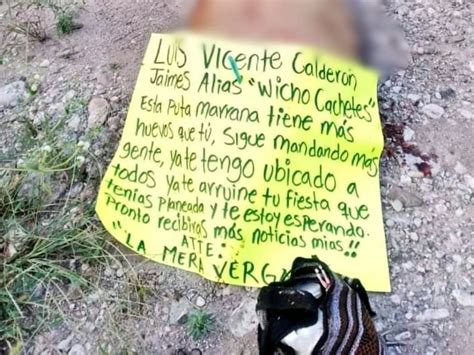 LUIS Vicente Calderón
Jaimes Alias "Wicho Cachetes"
Esta Puta marrana tiene más
huevos que tú, Sigue mandando más
gente, ya te tengo ubicado a
todos ya te arruine tu fiesta que
tenias planeada y te estoy esperando.
Pronto recibiras más noticias mias!!
ATTE:
"LA MERA VERGA